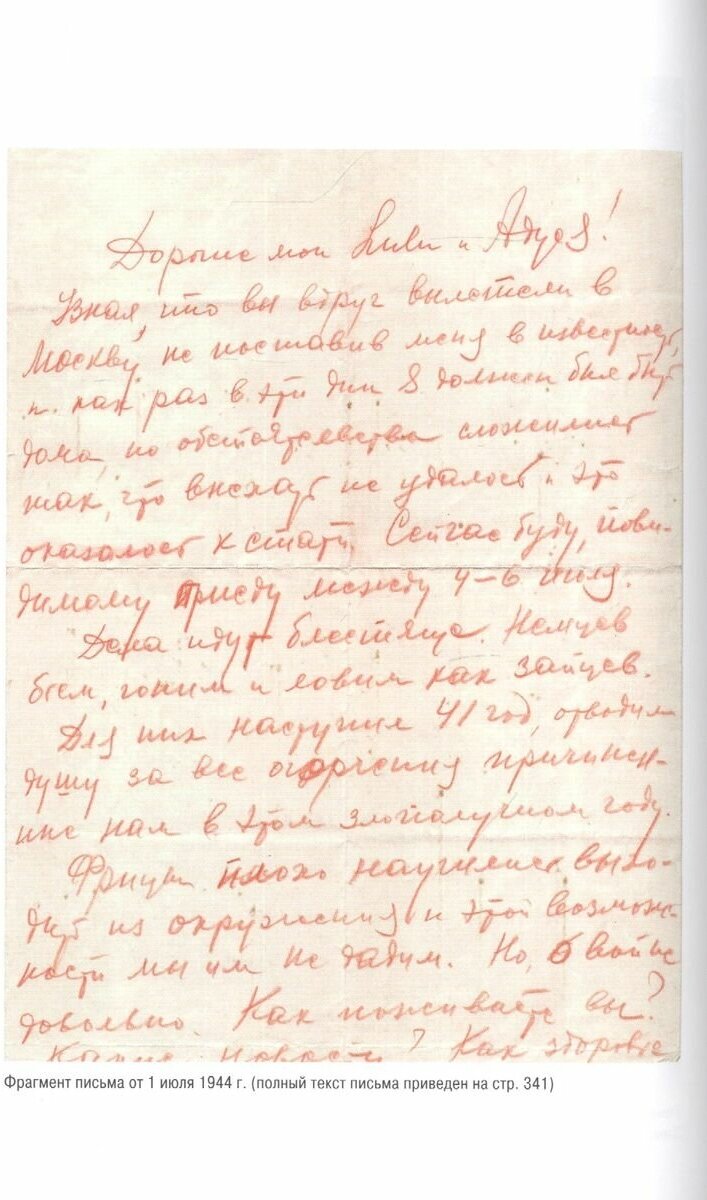 Дорогие мои Lulu и Адуся!
Узнал, что вы вдруг вылетели в
Москву, не поставив меня в известность,
и как раз в эти дни я должен был быть
дома, но обстоятельства сложились
так, что выехать не удалось и это
оказалось к стати. Сейчас буду, пови-
димому приеду между 4–6 июля.
Дела идут блестяще. Немцев
бьем, гоним и ловим как зайцев.
Для них наступил 41 год, отводим
душу за все огорчения причинен-
ные нам в этом злополучном году.
Фрицы плохо научились выхо-
дить из окружения и этой возмож-
ности мы им не дадим. Но, о войне
довольно. Как поживаете вы?
Какие новости? Как здоровье
Фрагмент письма от 1 июля 1944 г. (полный текст письма приведен на стр. 341)